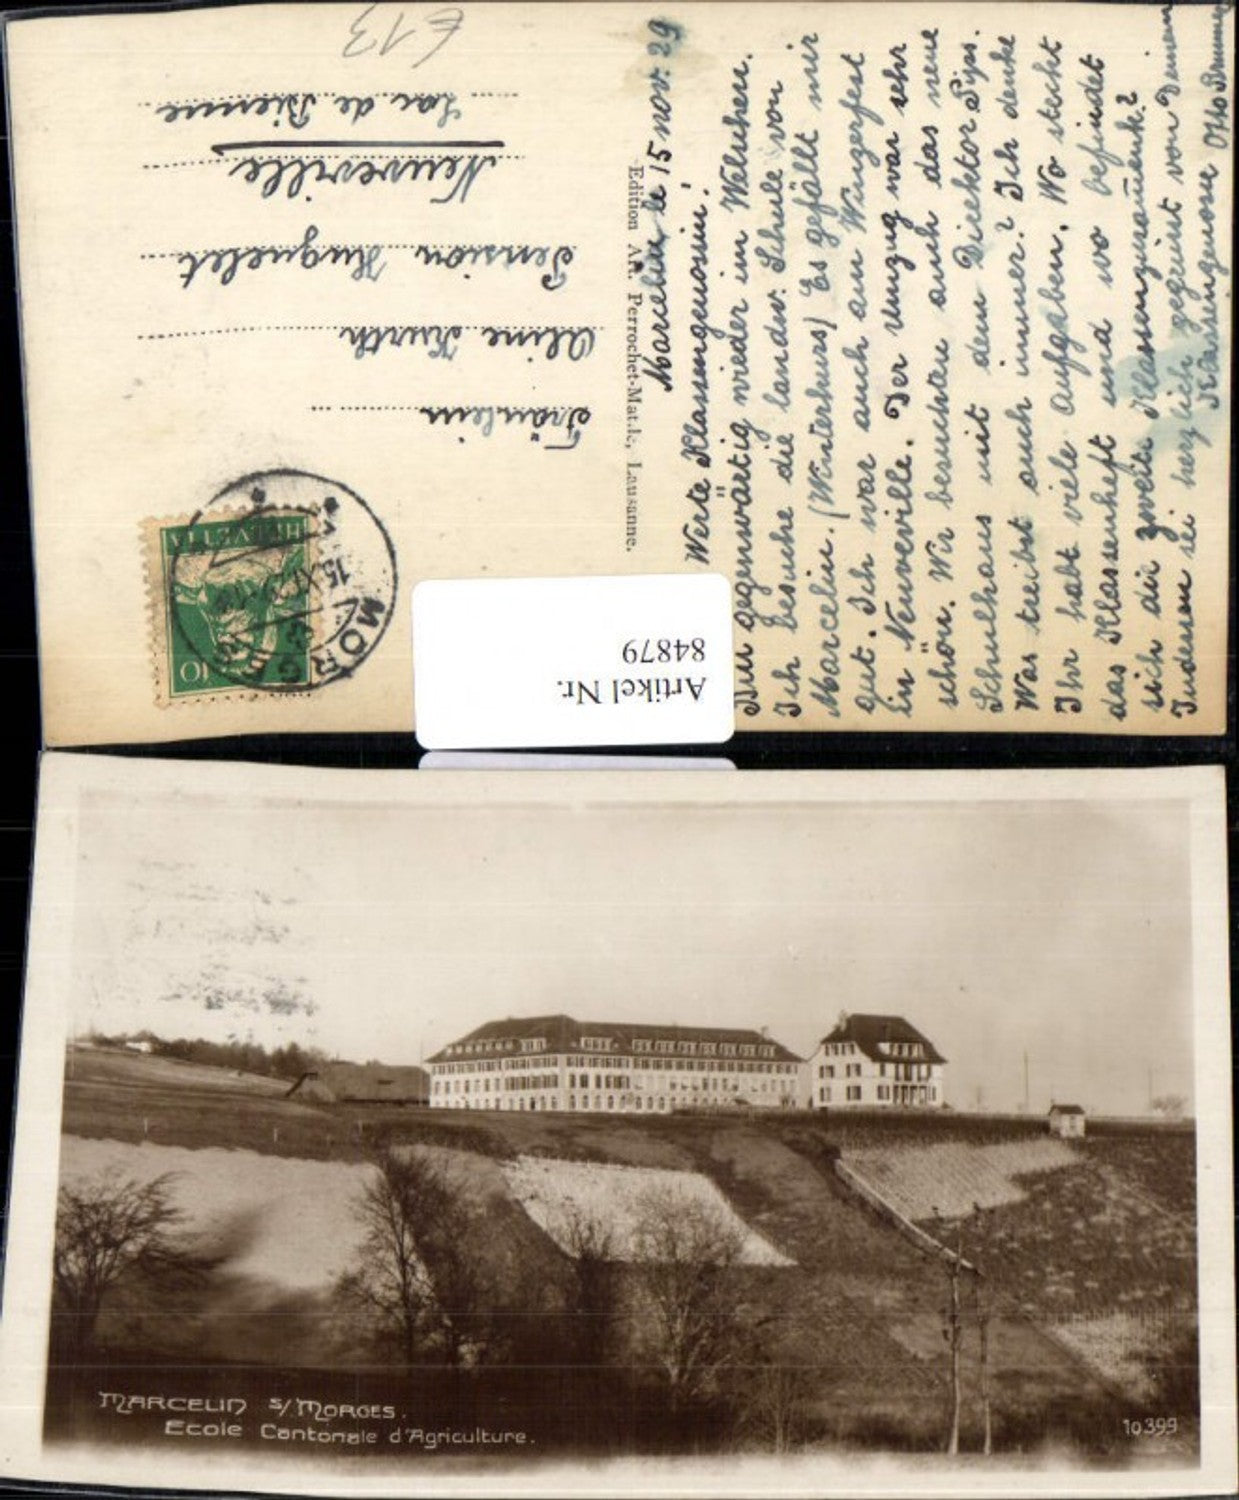 Marcelin le 15 nov. 29
Werte Klassengenossin!
Bin gegenwärtig wieder im Welschen.
Ich besuche die landw. Schule von
Marcelin. (Winterkurs) Es gefällt mir
gut. Ich war auch am Winzerfest
in Neuveville. Der Umzug war sehr
schön. Wir besuchten auch das neue
Schulhaus mit dem Direktor
Was treibst auch immer? Ich denke
Ihr habt viele Aufgaben. Wo steckt
das Klassenheft und wo befindet
sich die zweite Klassenzusammenk.?
Indessen sei herzlich gegrüsst von Deinem
Klassengenosse Otto Brunner
Edition Art. Perrochet-Matile, Lausanne.
€13
HELVETIA
10
MORGES
15.XI.29
Fräulein
Aline Kurth
Pension Huguelet
Neuveville
Lac de Bienne
Artikel Nr.
84879
MARCELIN S/MORGES.
Ecole Cantonale d'Agriculture.
10399